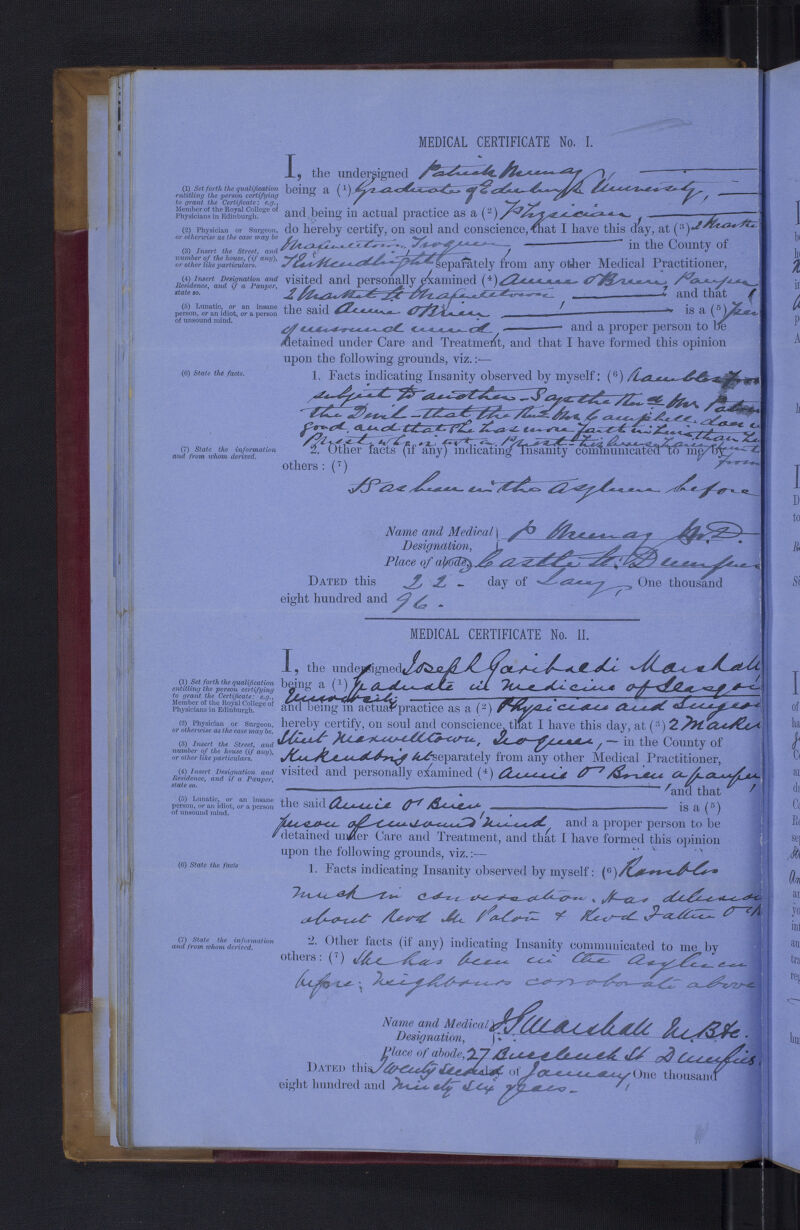 MEDICAL CERTIFICATE No. I.
I, the undersigned Patrick Murray
(1) Set forth the qualification entitling the person certifying to grant the Certificate: e.g., Member of the Royal College of Physicians in Edinburgh.
being a (1) Graduate of Edinburgh University,
and being in actual practice as a (2) Physician,
(2) Physician or Surgeon, or otherwise as the case may be
do hereby certify, on soul and conscience, that I have this day, at (3) 2 Marke
Maxwelltown, Troqueer, in the County of
(3) Insert the Street, and number of the house, (if any), or other like particulars.
Kirkcudbright separately from any other Medical Practitioner,
(4) Insert Designation and Residence, and if a Pauper, state so.
visited and personally examined (4) Annie O'Brien Pauper
2 Market St Maxwelltown and that
(5) Lunatic, or an insane person, or an idiot, or a person of unsound mind.
the said Annie O'Brien is a (5) per
of unsound mind, and a proper person to be
detained under Care and Treatment, and that I have formed this opinion
upon the following grounds, viz.:—
(6) State the facts.
1. Facts indicating Insanity observed by myself: (6) Rambles from
subject to another - Says the Revd Mr Paton
the Devil - that the Revd Mr Campbell does
good and that she has more faith in him than
Priest who is not a Priest
(7) State the information and from whom derived.
2. Other facts (if any) indicating Insanity communicated to me by
others: (7) from
Has been in the Asylum before
Name and Medical Designation, P Murray M.D.
Place of abode, Castle St. Dumfries
DATED this 22 - day of Jany, One thousand
eight hundred and 96.
MEDICAL CERTIFICATE No. II.
I, the undersigned Joseph Garibaldi Marshall
(1) Set forth the qualification entitling the person certifying to grant the Certificate: e.g., Member of the Royal College of Physicians in Edinburgh.
being a (1) Graduate in Medicine of Glasgow
University
and being in actual practice as a (2) Physician and Surgeon
(2) Physician or Surgeon, or otherwise as the case may be.
hereby certify, on soul and conscience, that I have this day, at (3) 2 Market
Street Maxwelltown, Troqueer, — in the County of
(3) Insert the Street, and number of the house (if any), or other like particulars.
Kirkcudbright separately from any other Medical Practitioner,
(4) Insert Designation and Residence, and if a Pauper, state so.
visited and personally examined (4) Annie O'Brien a pauper
and that
(5) Lunatic, or an insane person, or an idiot, or a person of unsound mind.
the said Annie O'Brien is a (5)
person of unsound mind, and a proper person to be
detained under Care and Treatment, and that I have formed this opinion
upon the following grounds, viz.:—
(6) State the facts
1. Facts indicating Insanity observed by myself: (6) Rambles
much in conversation. Has delusions
about Revd Mr Paton & Revd Father O'
(7) State the information and from whom derived.
2. Other facts (if any) indicating Insanity communicated to me by
others: (7) She has been in the Asylum
before; Neighbours corroborate above
Name and Medical Designation, J G Marshall M.B &c.
Place of abode, 27 Buccleuch St Dumfries.
DATED this Twenty second of January, One thousand
eight hundred and Ninety six years -